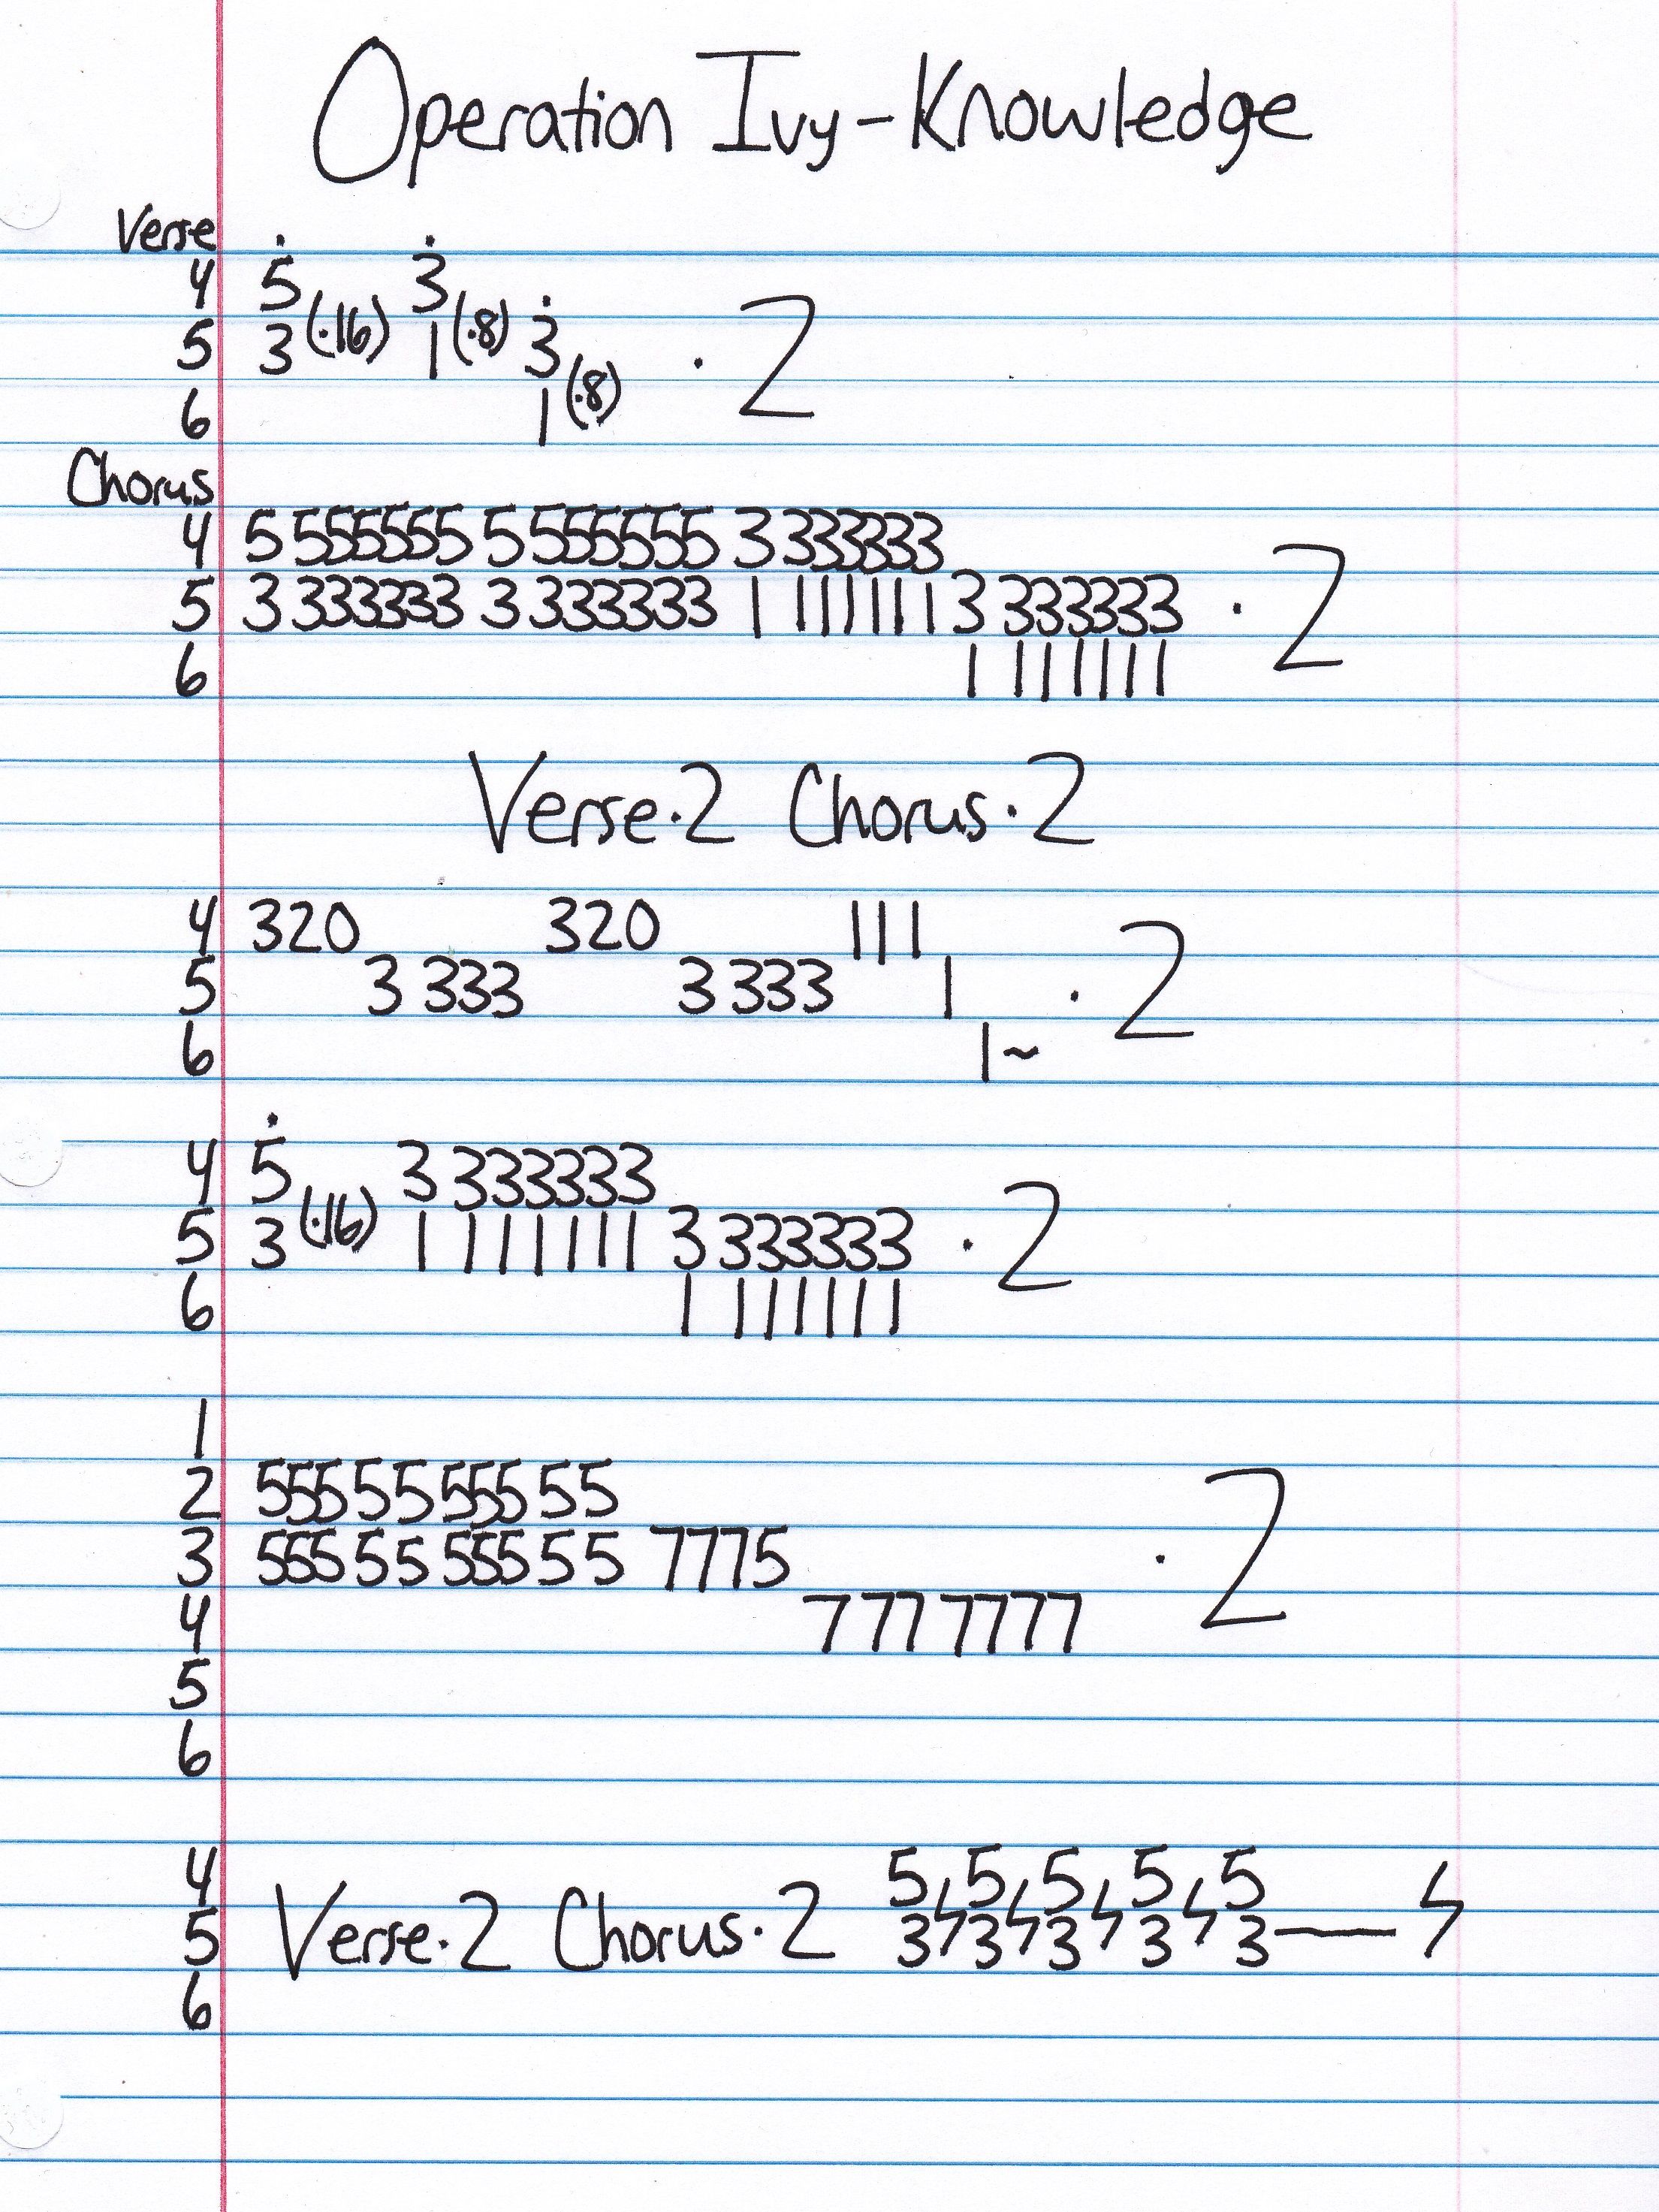 Operation Ivy - Knowledge
Verse
4 5 3
5 3 (·16) 1 (·8) 3 · 2
6 1 (·8)
Chorus
4 5 555555 5 555555 3 333333
5 3 333333 3 333333 1 111111 3 333333 · 2
6 1 111111
Verse · 2 Chorus · 2
4 320 320 111
5 3 333 3 333 1 · 2
6 1~
4 5 3 333333
5 3 (·16) 1 111111 3 333333 · 2
6 1 111111
1
2 555 5 5 555 5 5
3 555 5 5 555 5 5 7775 · 2
4 7 77 7777
5
6
4 5 5 5 5 5
5 Verse · 2 Chorus · 2 3 3 3 3 3
6